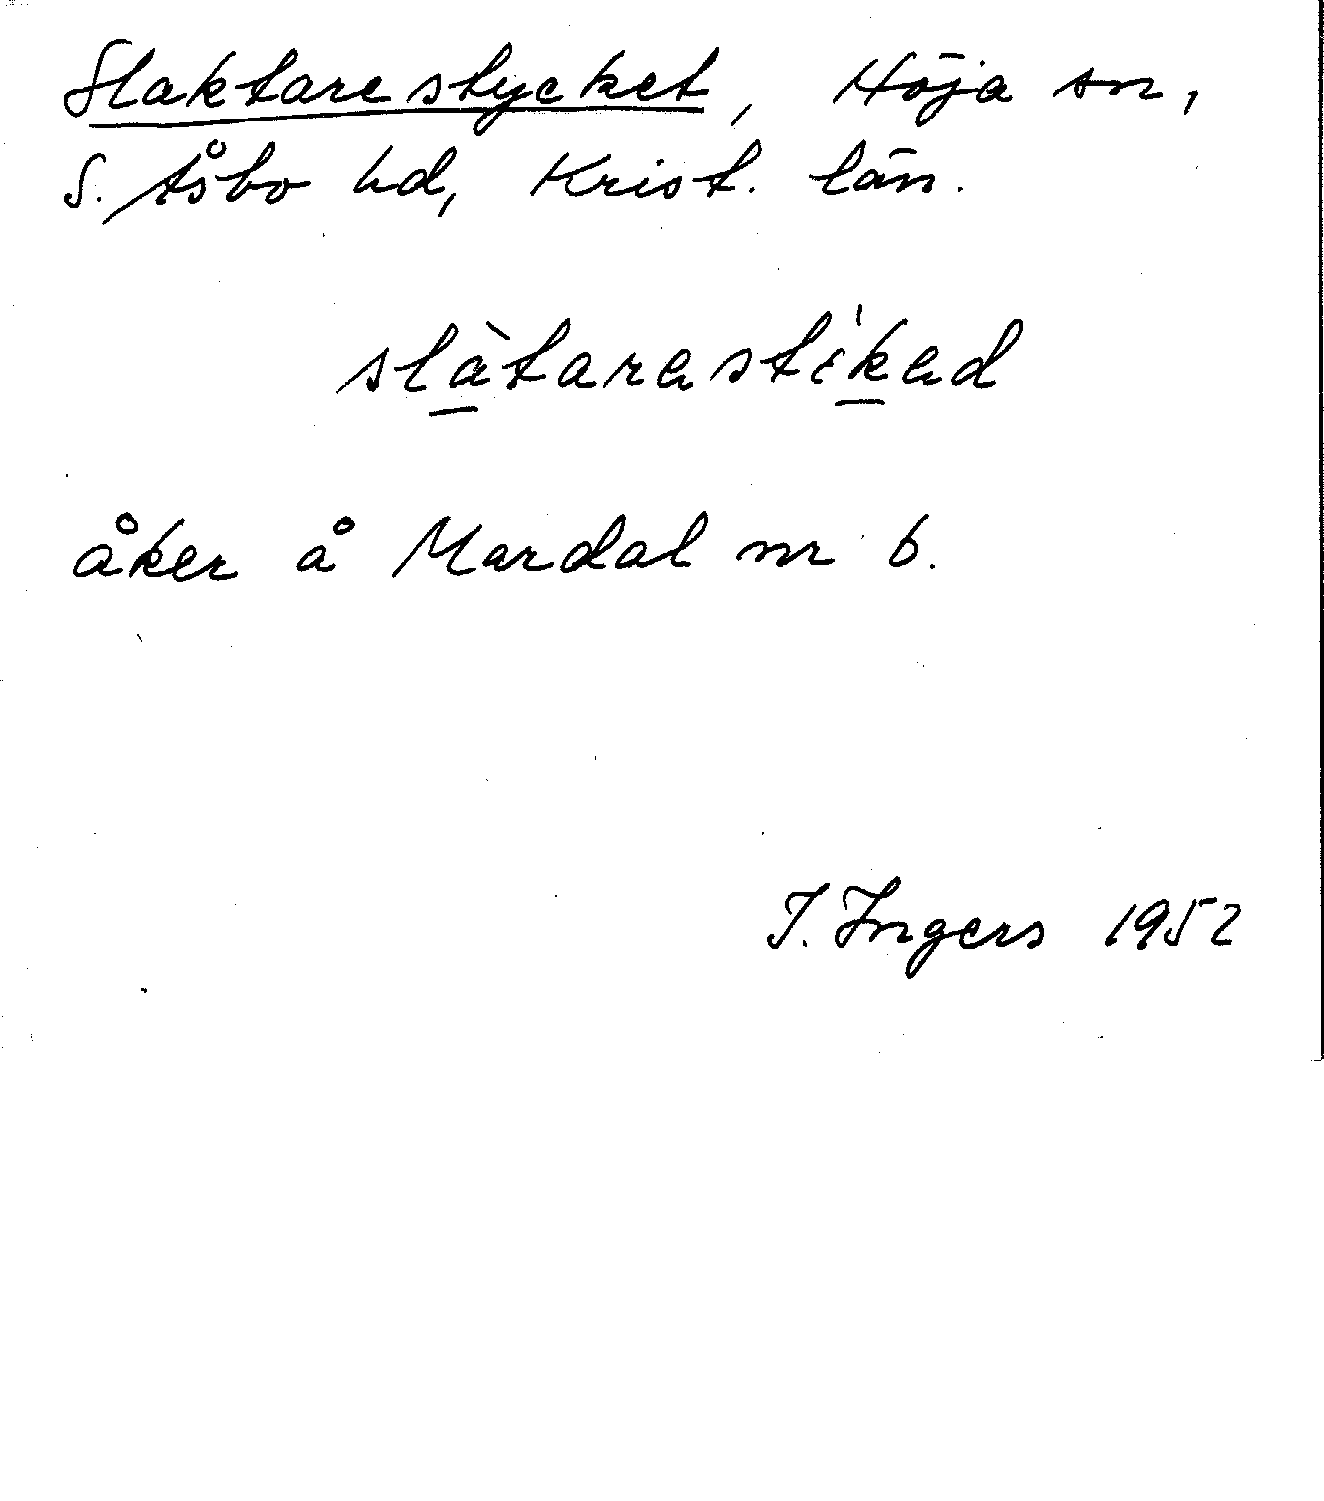 Slaktarestycket, Höja sn,
S. Åsbo hd, Krist. län.
slàtarastíkad
åker å Mardal nr 6.
I. Ingers 1952